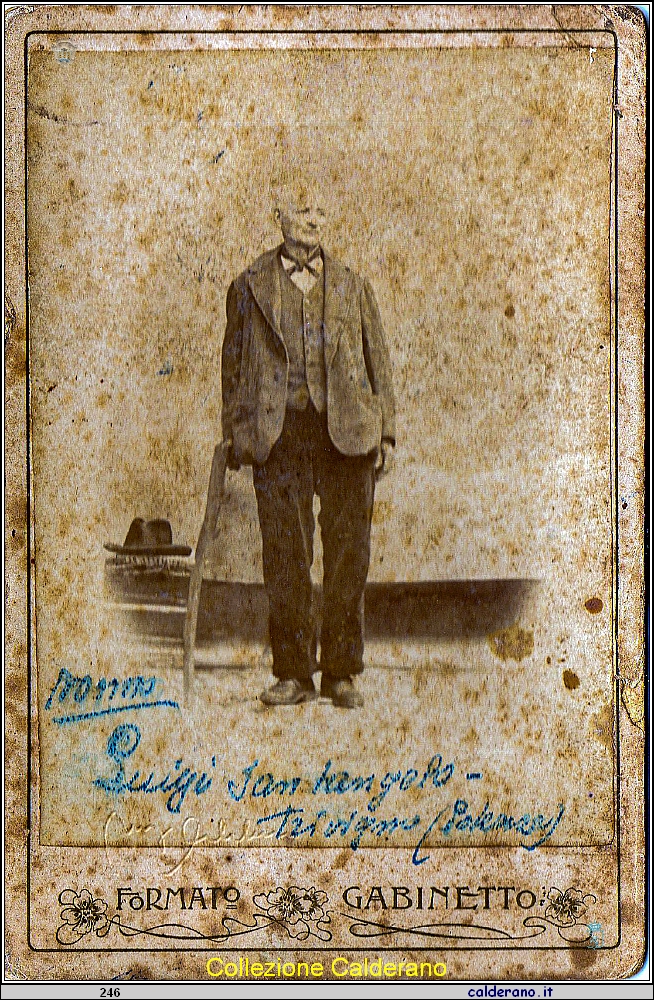 nonno
Luigi Santangolo -
Trivigno (Potenza)
FORMATO GABINETTO
Collezione Calderano
246 calderano.it